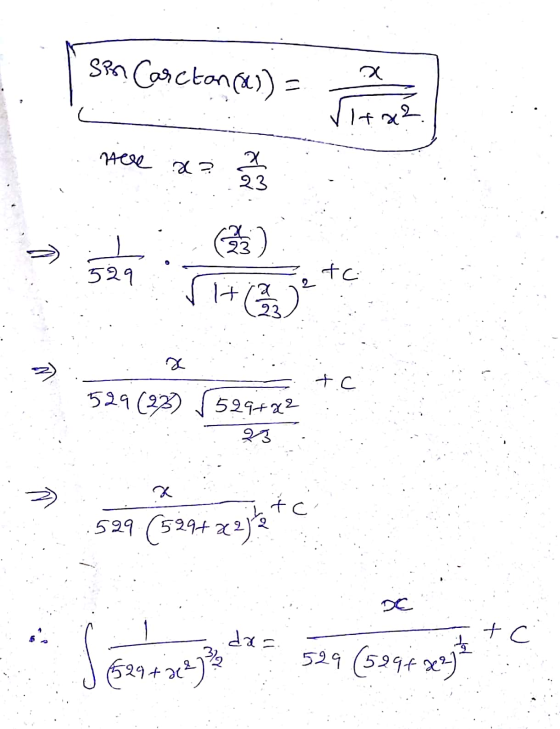 sin(arctan(x)) = x/√(1+x²)
Here x = x/23
⇒ 1/529 · (x/23)/√(1+(x/23)²) + c
⇒ x/(529(23) √(529+x²)/23) + c
⇒ x/(529(529+x²)^(1/2)) + c
∴ ∫ 1/(529+x²)^(3/2) dx = x/(529(529+x²)^(1/2)) + c